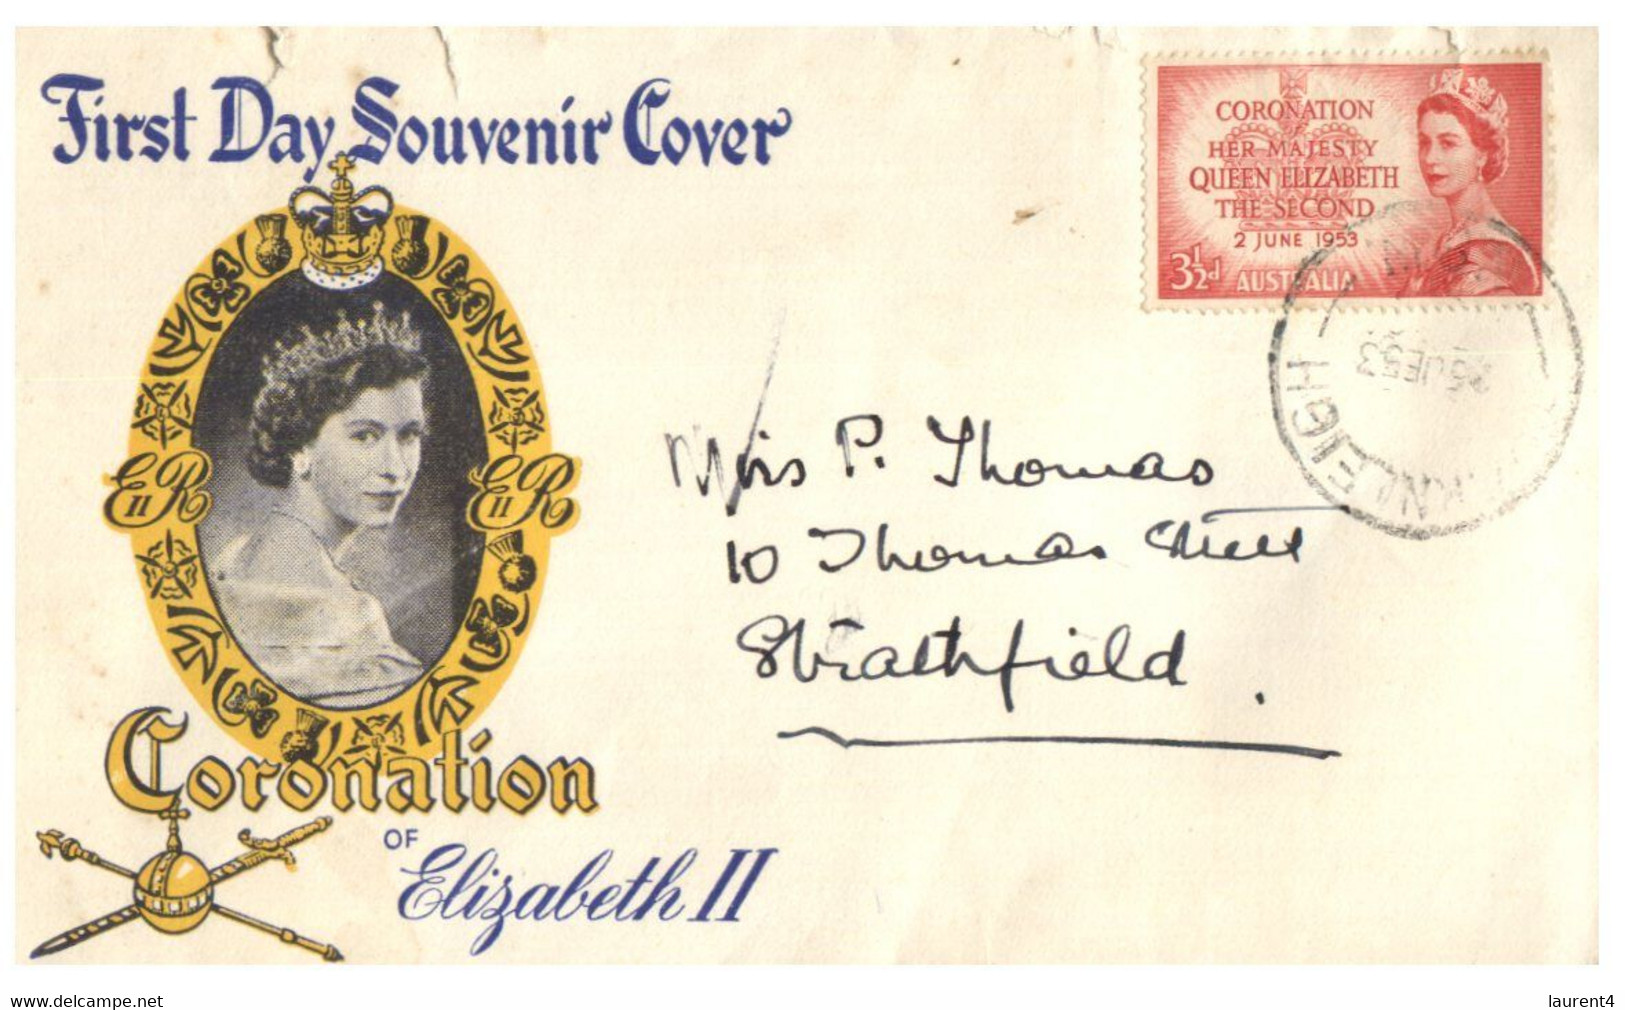 First Day Souvenir Cover
CORONATION
OF
HER MAJESTY
QUEEN ELIZABETH
THE SECOND
2 JUNE 1953
3½d AUSTRALIA
25 JE 53
HGIELNK
E II R
E II R
Miss P. Thomas
10 Thomas Street
Strathfield.
Coronation
OF
Elizabeth II
www.delcampe.net
laurent4